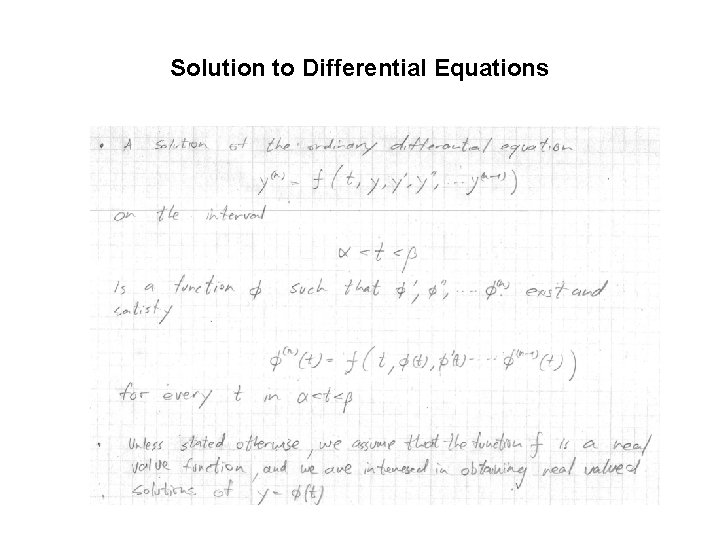 Solution to Differential Equations
• A solution of the ordinary differential equation
y⁽ⁿ⁾ = f(t, y, y', y'', ... y⁽ⁿ⁻¹⁾)
on the interval
α < t < β
Is a function ϕ such that ϕ', ϕ'', ... ϕ⁽ⁿ⁾ exist and
satisfy
ϕ⁽ⁿ⁾(t) = f(t, ϕ(t), ϕ'(t) ... ϕ⁽ⁿ⁻¹⁾(t))
for every t in α<t<β
• Unless stated otherwise, we assume that the function f is a real
value function, and we are interesed in obtaining real valued
solutions of y = ϕ(t)